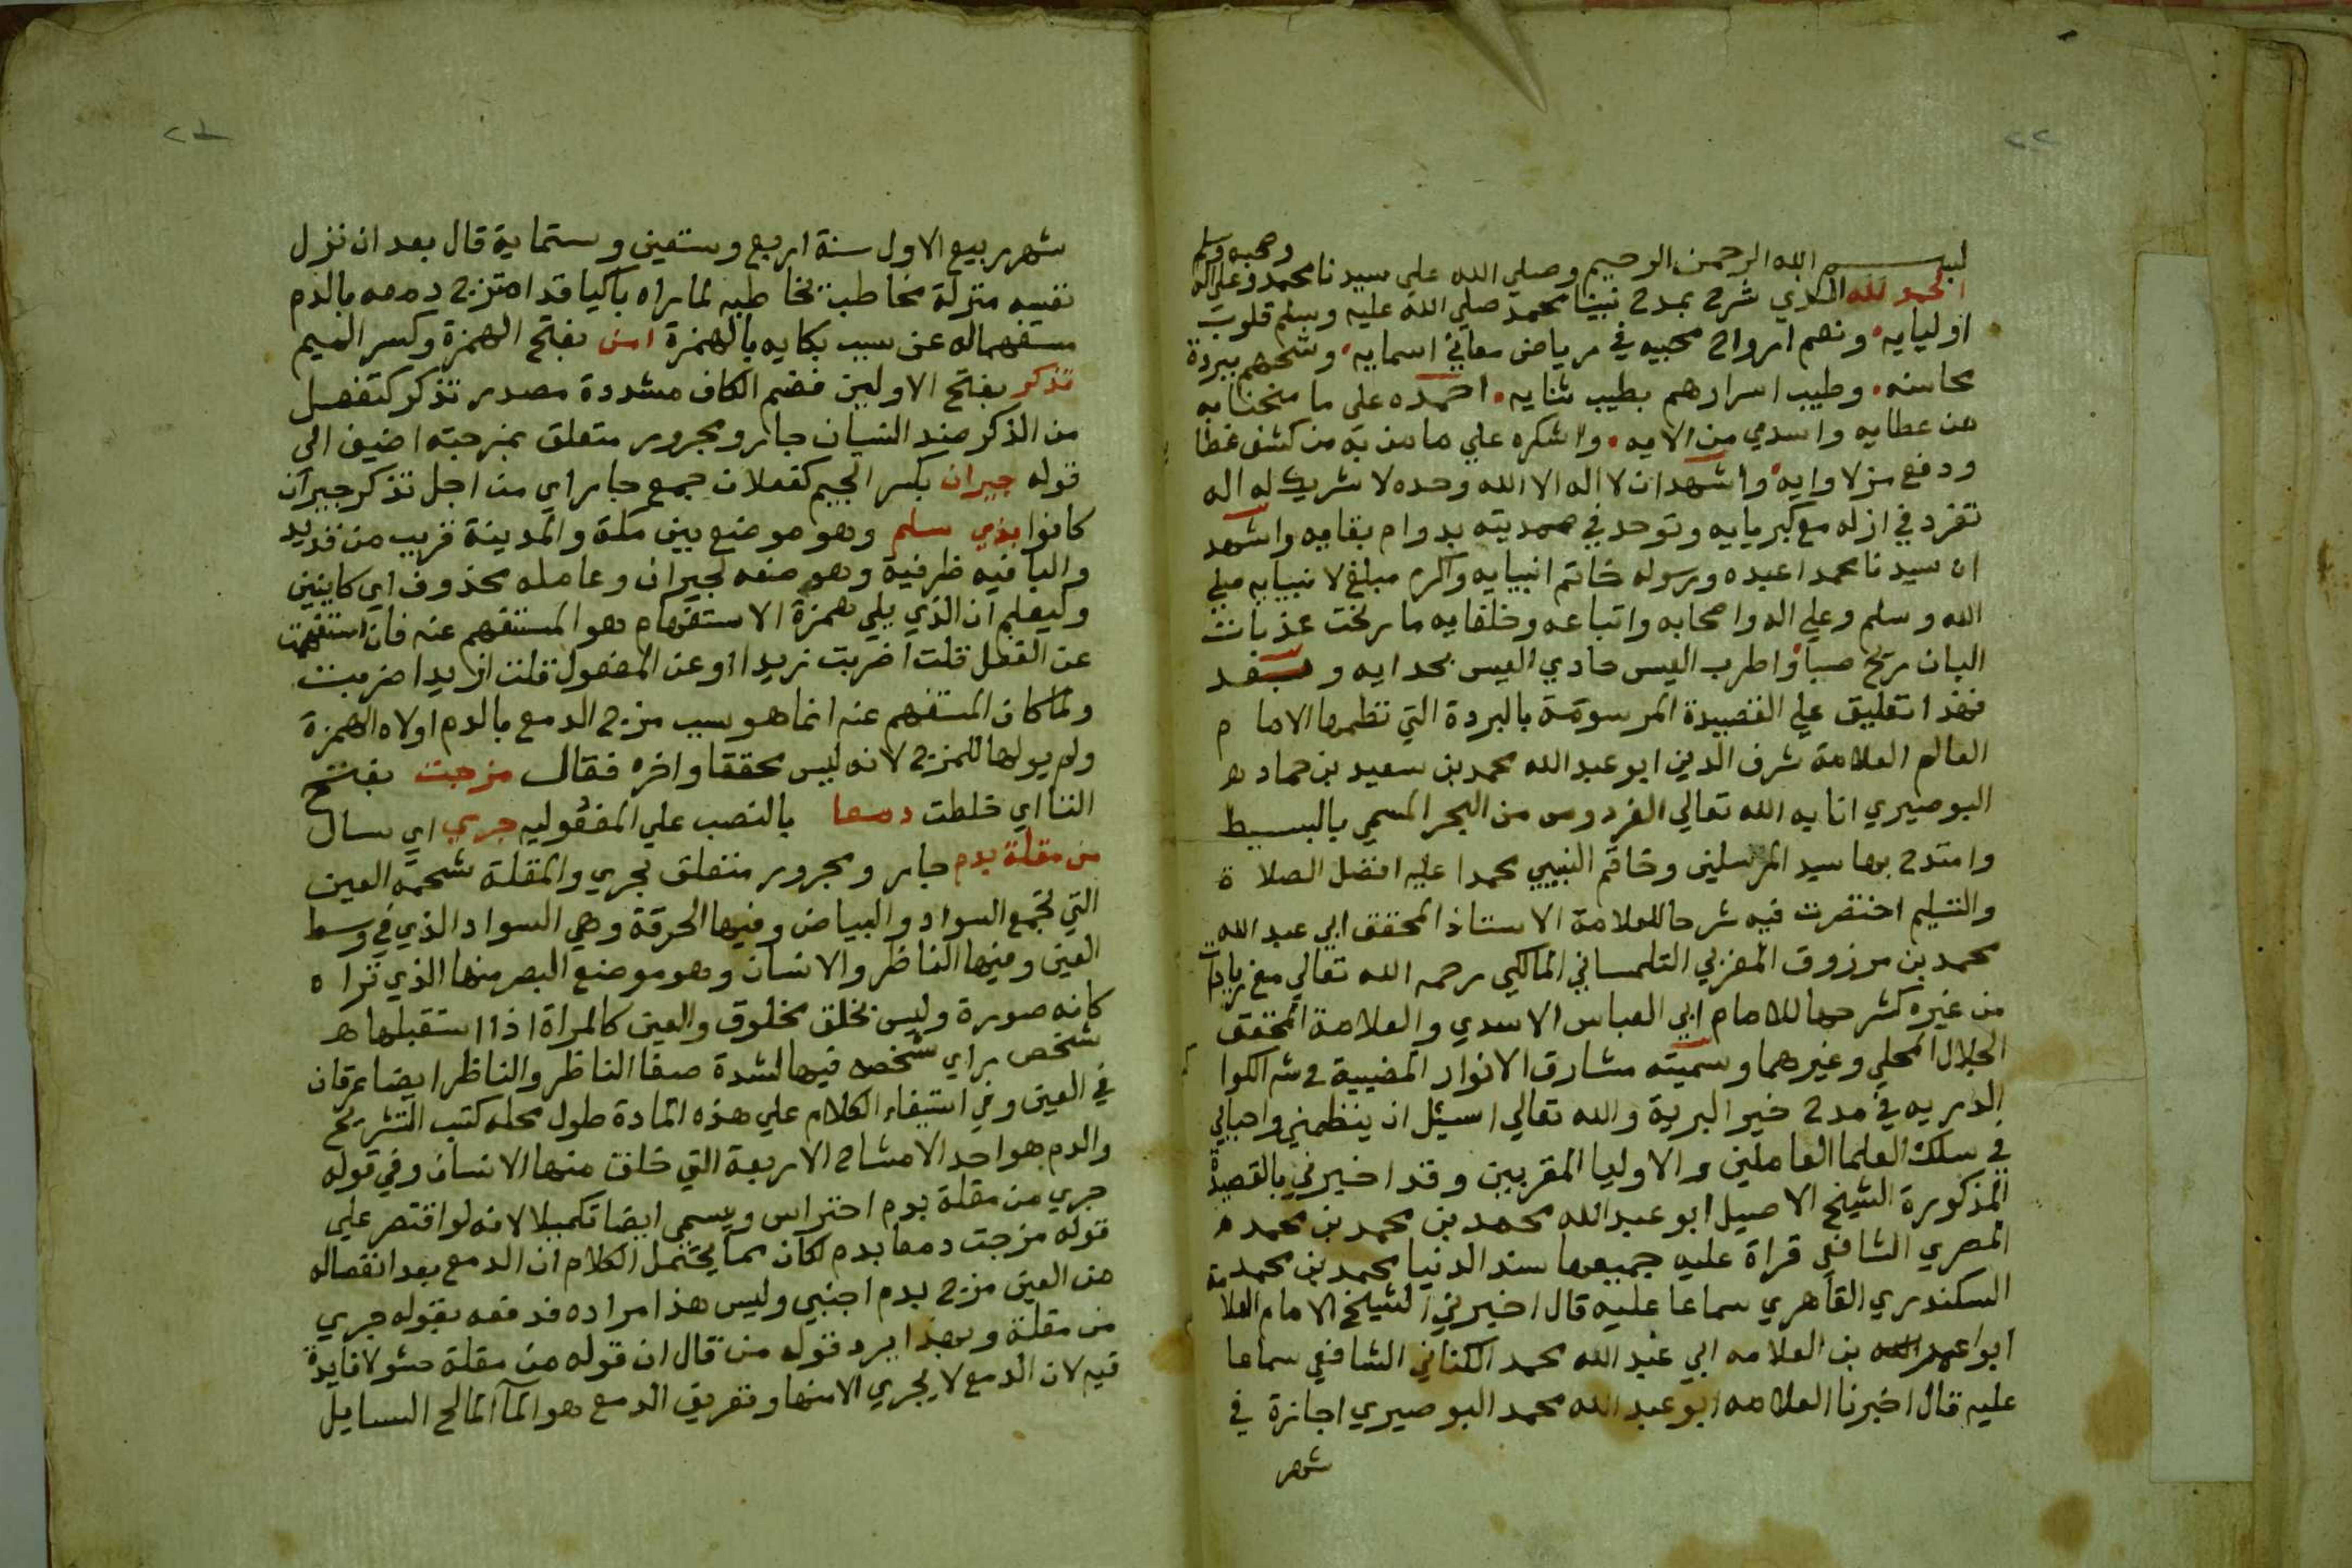 ٢٢
بسم الله الرحمن الرحيم وصلي الله علي سيدنا محمد وعلي اله وصحبه وسلم
الحمد لله الذي شرح بمدح نبينا محمد صلي الله عليه وسلم قلوب
اوليايه ونعم ارواح محبيه في رياض معاني اسمايه ببردة
محاسنه وطيب اسرارهم بطيب ثنايه احمده علي ما منحنا به
من عطايه واسدي من الايه واشكره علي ما من به من كشف غطا
ودفع من لاوايه واشهد ان لا اله الا الله وحده لا شريك له اله
تفرد في ازله مع كبريايه وتوحد في صمديته بدوام بقايه واشهد
ان سيدنا محمدا عبده ورسوله خاتم انبيايه واكرم مبلغ لانبيايه صلي
الله وسلم وعلي اله واصحابه واتباعه وخلفايه ما رنحت عذبات
البان ريح صبا واطرب العيس حادي العيس بحدايه وبعد
فهذا تعليق علي القصيدة المرسومة بالبردة التي نظمها الامام
العالم العلامة شرف الدين ابو عبد الله محمد بن سعيد بن حماد
البوصيري اثابه الله تعالي الفردوس من البحر المسمي بالبسيط
وامتدح بها سيد المرسلين وخاتم النبيين محمدا عليه افضل الصلاة
والتسليم اختصرت فيه شرحا للعلامة الاستاذ المحقق ابي عبد الله
محمد بن مرزوق المغربي التلمساني المالكي رحمه الله تعالي مع زيادات
من غيره كشرحها للامام ابي العباس الاسدي والعلامة المحقق
الجلال المحلي وغيرهما وسميته مشارق الانوار المضيية في شر الكوا
الدريه في مدح خير البرية والله تعالي اسيل ان ينظمني واحبابي
في سلك العلما العاملين والاوليا المقربين وقد اخبرني بالقصيدة
المذكورة الشيخ الاصيل ابو عبد الله محمد بن محمد بن محمد
المصري الشافعي قراة عليه جميعها سند الدنيا محمد بن محمد
السكندري القاهري سماعا عليه قال اخبرني الشيخ الامام العلامة
ابو عمر بن العلامه ابي عبد الله محمد الكناني الشافعي سماعا
عليه قال اخبرنا العلامه ابو عبد الله محمد البوصيري اجازة في
شهر
شهر ربيع الاول سنة اربع وستين وستماية قال بعد ان نزل
نفسه منزلة مخاطب يخاطبه لما راه باكيا قد امتزج دمعه بالدم
مستفهما له عن سبب بكايه بالهمزة امن بفتح الهمزة وكسر الميم
تذكر بفتح الاولين فضم الكاف مشددة مصدر تذكر كتفعل
من الذكر ضد النسيان جار ومجرور متعلق بمزجته اضيف الي
قوله جيران بكسر الجيم كفعلان جمع جار اي من اجل تذكر جيران
كانوا بذي سلم وهو موضع بين مكة والمدينة قريب من قديد
والبا فيه ظرفية وهو صفه لجيران وعامله محذوف اي كاينين
وليعلم ان الذي يلي همزة الاستفهام هو المستفهم عنه فان استفهمت
عن الفعل قلت اضربت زيدا او عن المفعول قلت ازيدا ضربت
ولما كان المستفهم عنه انما هو سبب مزج الدمع بالدم اولاه الهمزة
ولم يولها للمزج لانه ليس محققا واخره فقال مزجت بفتح
التا اي خلطت دمعا بالنصب علي المفعوليه جري اي سال
من مقلة بدم جار ومجرور متعلق بجري والمقلة شحمة العين
التي تجمع السواد والبياض وفيها الحدقة وهي السواد الذي في وسط
العين وفيها الناظر والانسان وهو موضع البصر منها الذي تراه
كانه صورة وليس بخلق مخلوق والعين كالمراة اذا استقبلها
شخص راي شخصه فيها لشدة صفا الناظر والناظر ايضا عرقان
في العين وفي استيفاء الكلام علي هذه المادة طول محله كتب التشريح
والدم هو احد الامشاج الاربعة التي خلق منها الانسان وفي قوله
جري من مقلة بدم احتراس ويسمي ايضا تكميلا لانه لو اقتصر علي
قوله مزجت دمعا بدم لكان مما يحتمل الكلام ان الدمع بعد انفصاله
من العين مزج بدم اجنبي وليس هذا مراده فدفعه بقوله جري
من مقلة وبهذا يرد قول من قال ان قوله من مقلة حشو لا فايدة
فيه لان الدمع لا يجري الا منها وتعريف الدمع هو الما المالح السايل